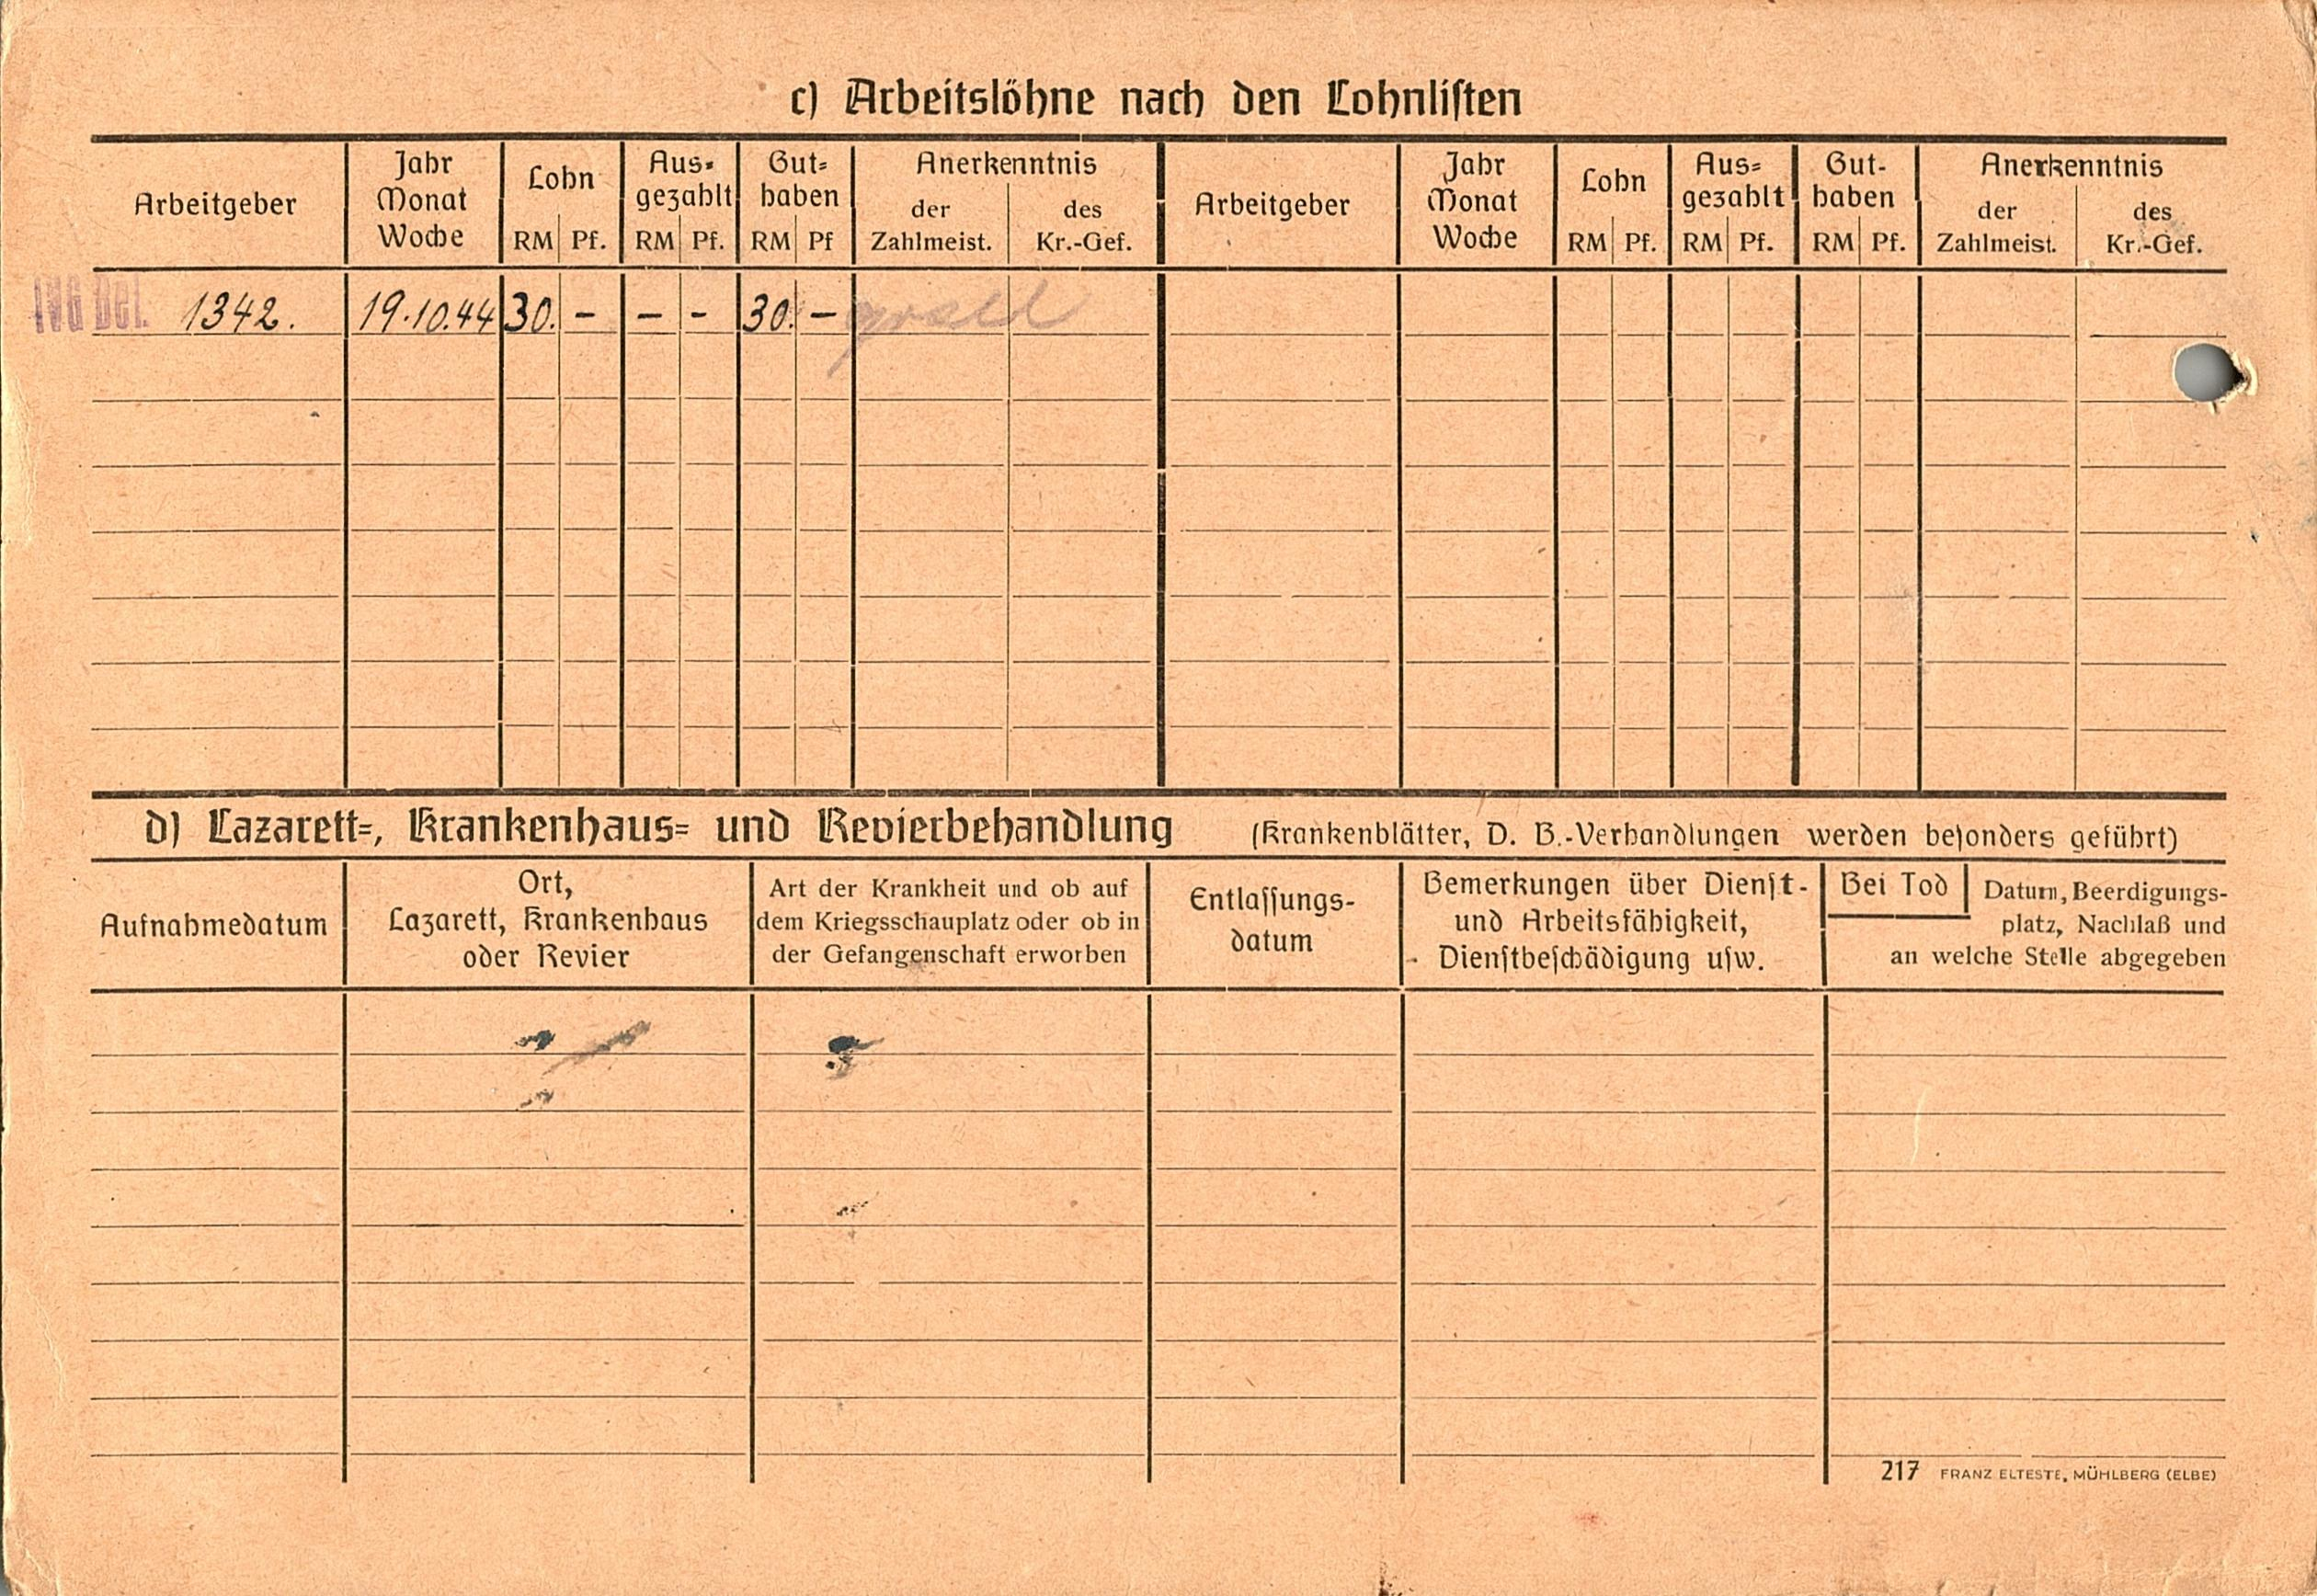 c) Arbeitslöhne nach den Lohnlisten
Arbeitgeber
Jahr
Monat
Woche
Lohn
RM Pf.
Aus-
gezahlt
RM Pf.
Gut-
haben
RM Pf
Anerkenntnis
der
Zahlmeist.
des
Kr.-Gef.
Arbeitgeber
Jahr
Monat
Woche
Lohn
RM Pf.
Aus-
gezahlt
RM Pf.
Gut-
haben
RM Pf.
Anerkenntnis
der
Zahlmeist.
des
Kr.-Gef.
1342. 19.10.44 30. - - - 30. -
d) Lazarett-, Krankenhaus- und Revierbehandlung (Krankenblätter, D. B.-Verhandlungen werden besonders geführt)
Aufnahmedatum
Ort,
Lazarett, Krankenhaus
oder Revier
Art der Krankheit und ob auf
dem Kriegsschauplatz oder ob in
der Gefangenschaft erworben
Entlassungs-
datum
Bemerkungen über Dienst-
und Arbeitsfähigkeit,
Dienstbeschädigung usw.
Bei Tod
Datum, Beerdigungs-
platz, Nachlaß und
an welche Stelle abgegeben
217 FRANZ ELTESTE, MÜHLBERG (ELBE)